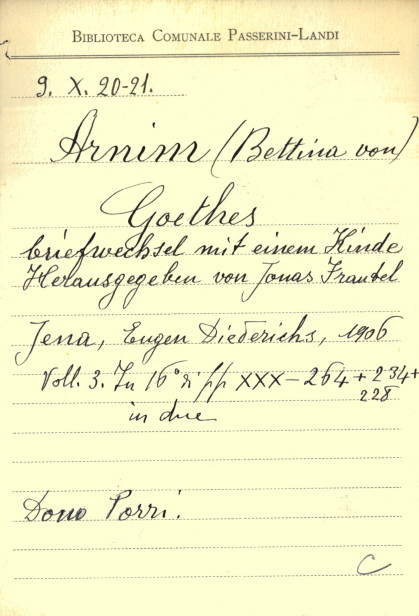 BIBLIOTECA COMUNALE PASSERINI-LANDI
9. X. 20-21.
Arnim (Bettina von)
Goethes
briefwechsel mit einem Kinde
Herausgegeben von Jonas Frankel
Jena, Eugen Diederichs, 1906
Voll. 3. In 16° di pp XXX-264+234+
228
in due
Dono Porri.
C